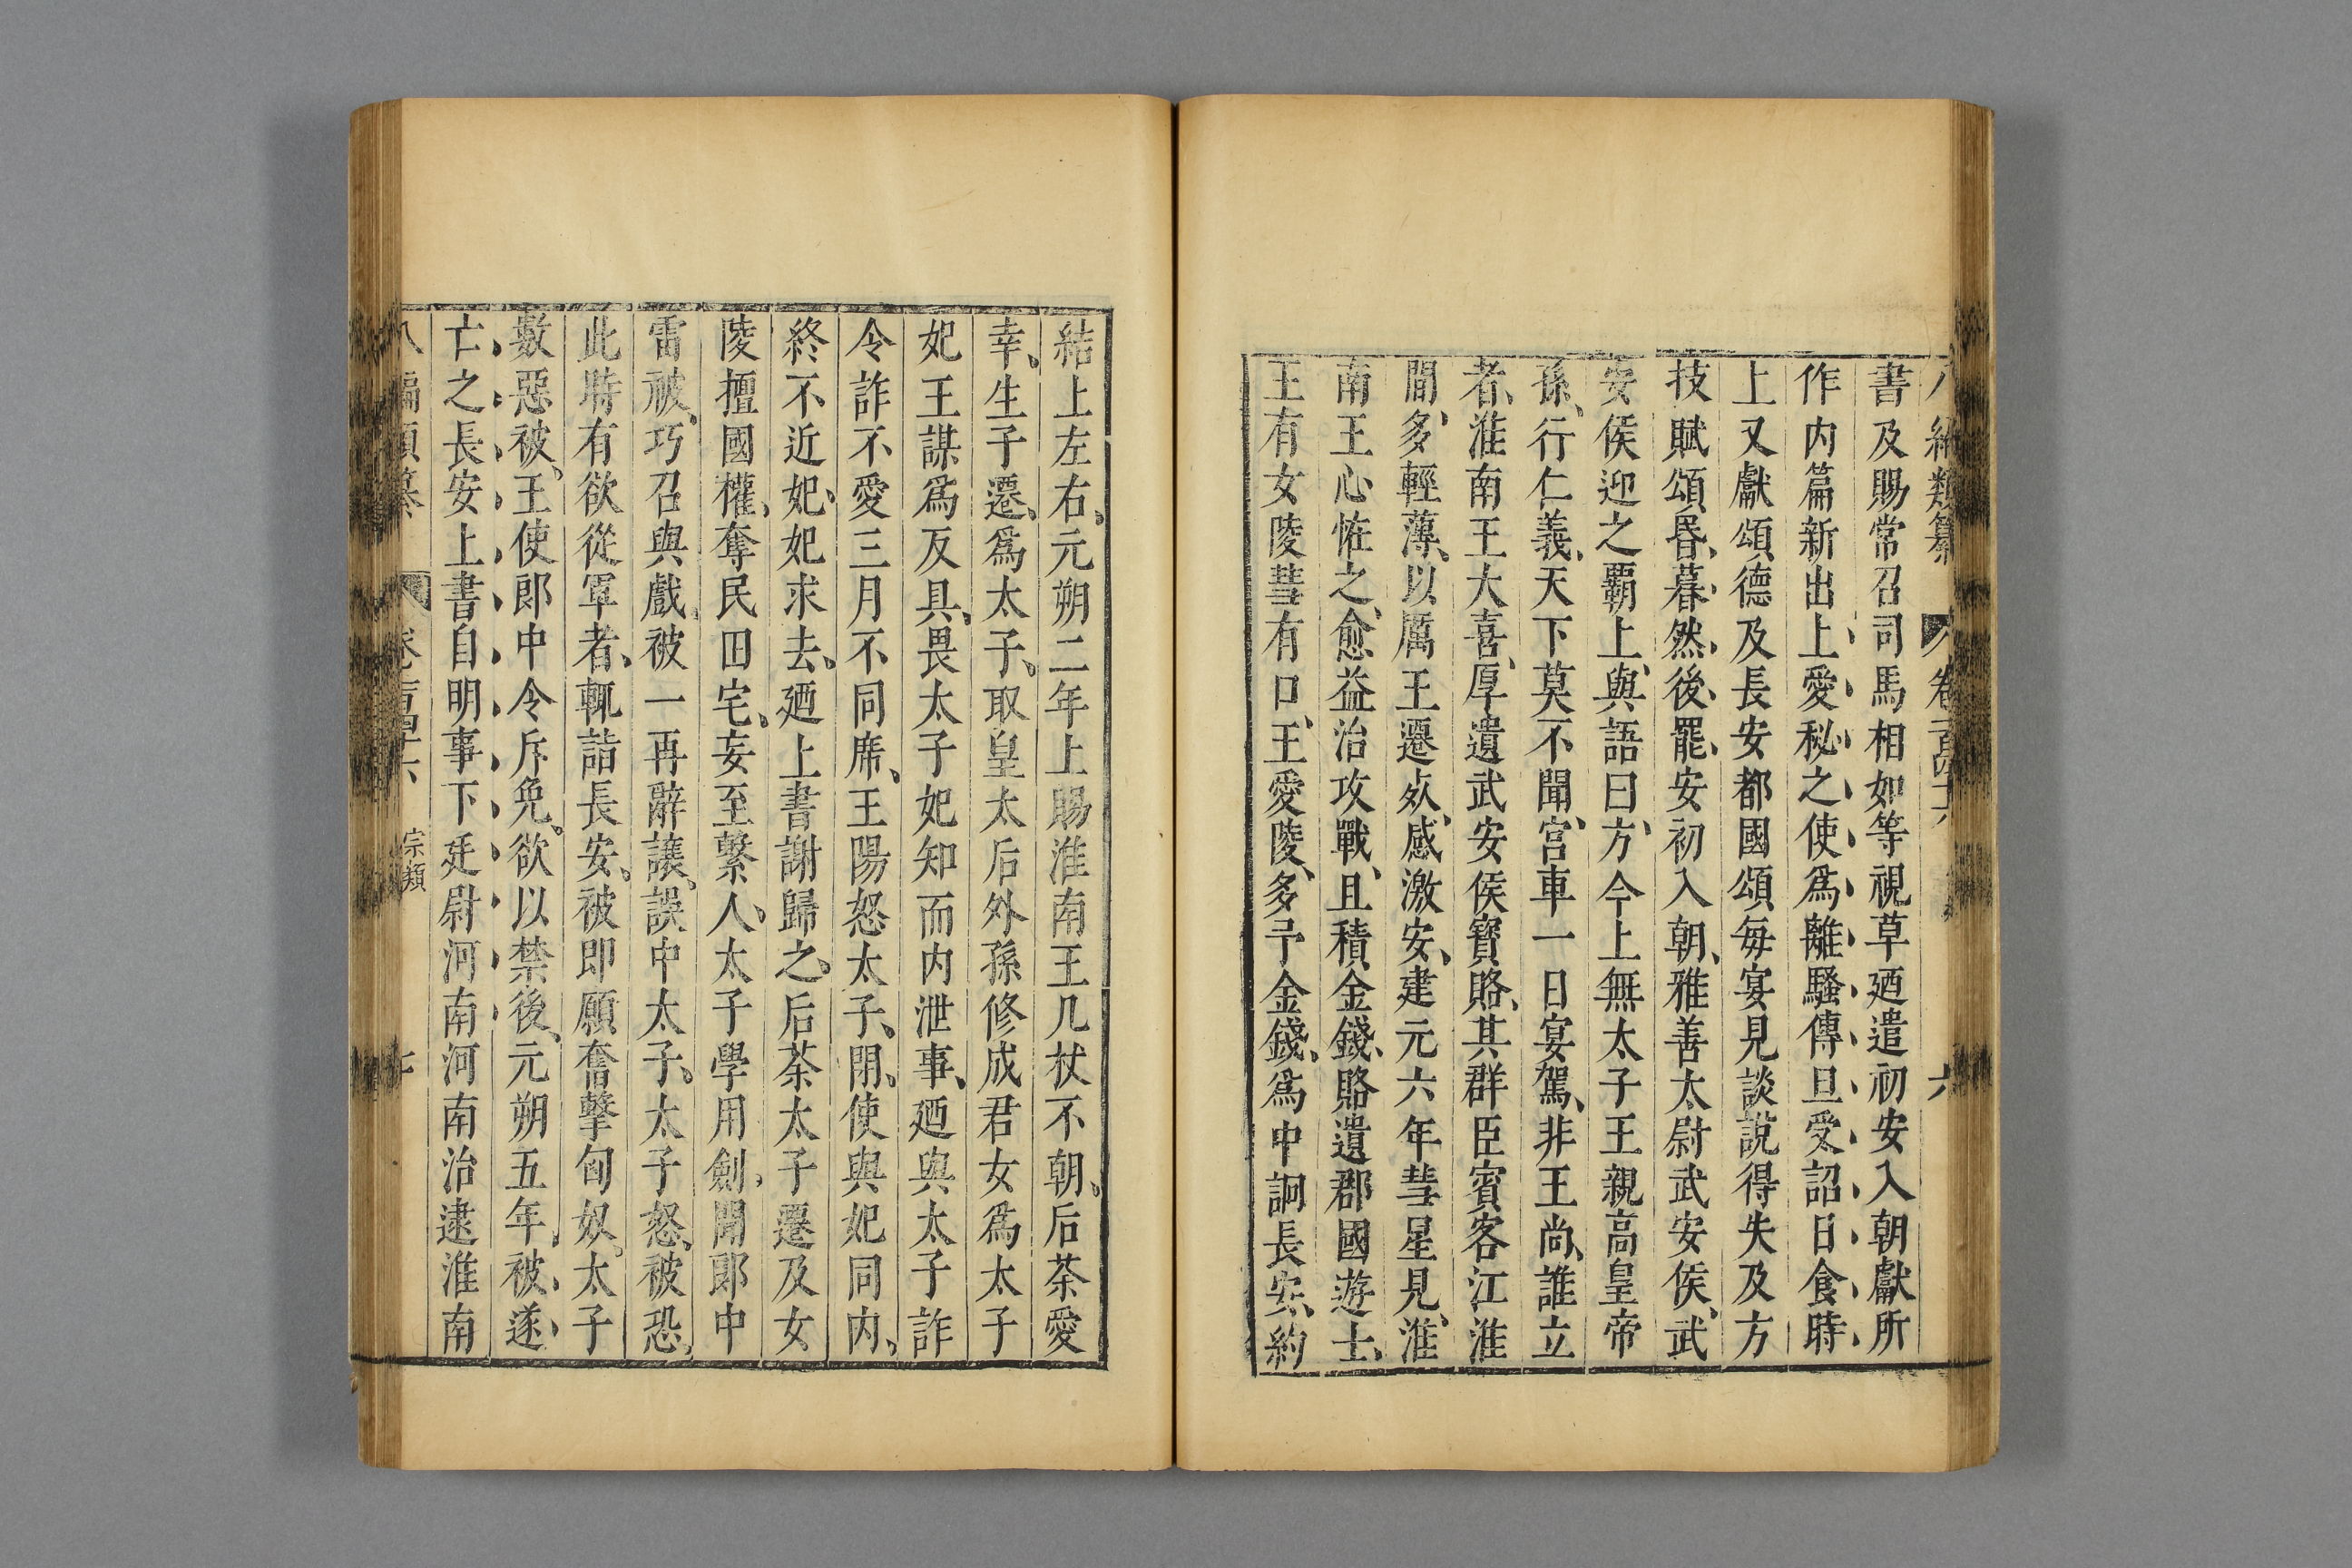 八編類纂 卷一百四十六 六
書及賜常召司馬相如等視草廼遣初安入朝獻所
作内篇新出上愛秘之使爲離騷傳旦受詔日食時
上又獻頌德及長安都國頌每宴見談說得失及方
技賦頌昏暮然後罷安初入朝雅善太尉武安侯武
安侯迎之覇上與語曰方今上無太子王親高皇帝
孫行仁義天下莫不聞宮車一日宴駕非王尚誰立
者淮南王大喜厚遺武安侯寳賂其群臣賓客江淮
間多輕薄以厲王遷死感激安建元六年彗星見淮
南王心恠之愈益治攻戰且積金錢賂遺郡國遊士
王有女陵彗有口王愛陵多予金錢爲中詗長安約
結上左右元朔二年上賜淮南王几杖不朝后荼愛
幸生子遷爲太子取皇太后外孫修成君女爲太子
妃王謀爲反具畏太子妃知而内泄事廼與太子詐
令詐不愛三月不同席王陽怒太子閉使與妃同内
終不近妃妃求去廼上書謝歸之后荼太子遷及女
陵擅國權奪民田宅妄至繫人太子學用劍聞郎中
雷被巧召與戲被一再辭讓誤中太子太子怒被恐
此時有欲從軍者輒詣長安被即願奮擊匈奴太子
數惡被王使郎中令斥免欲以禁後元朔五年被遂
亡之長安上書自明事下廷尉河南河南治逮淮南
八編類纂 卷一百四十六 宗類 七